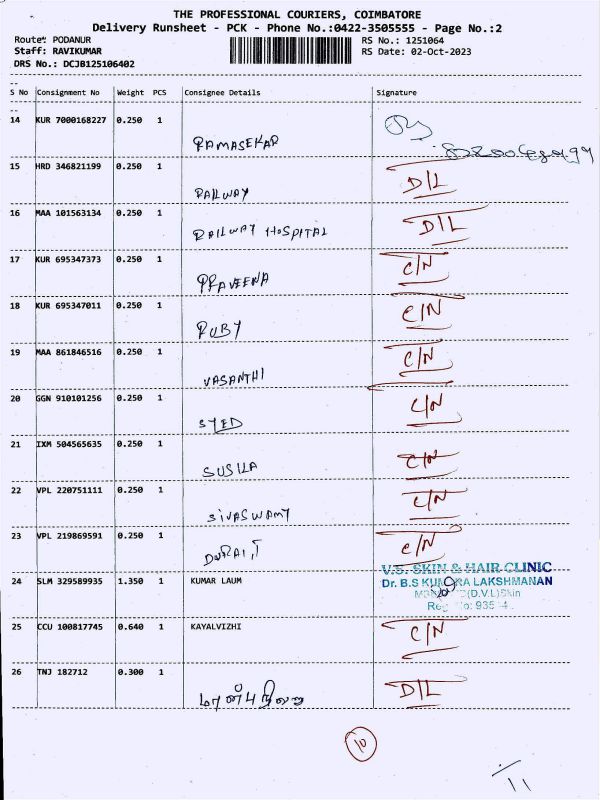 THE PROFESSIONAL COURIERS, COIMBATORE
Delivery Runsheet - PCK - Phone No.:0422-3505555 - Page No.:2
Route: PODANUR RS No.: 1251064
Staff: RAVIKUMAR RS Date: 02-Oct-2023
DRS No.: DCJB125106402
S No Consignment No Weight PCS Consignee Details Signature
14 KUR 7000168227 0.250 1
RAMASEKAR
15 HRD 346821199 0.250 1
RAILWAY D/L
16 MAA 101563134 0.250 1
RAILWAY HOSPITAL D/L
17 KUR 695347373 0.250 1
PRAVEENA C/N
18 KUR 695347011 0.250 1
RUBY C/N
19 MAA 861846516 0.250 1
VASANTHI C/N
20 GGN 910101256 0.250 1
SYED C/N
21 IXM 504565635 0.250 1
SUSILA C/N
22 VPL 220751111 0.250 1
SIVASWAMY C/N
23 VPL 219869591 0.250 1
DURAI,T C/N
V.S. SKIN & HAIR CLINIC
24 SLM 329589935 1.350 1 KUMAR LAUM Dr. B.S KUMARA LAKSHMANAN
(D.V.L)Skin
25 CCU 100817745 0.640 1 KAYALVIZHI C/N
26 TNJ 182712 0.300 1
D/L
10
11